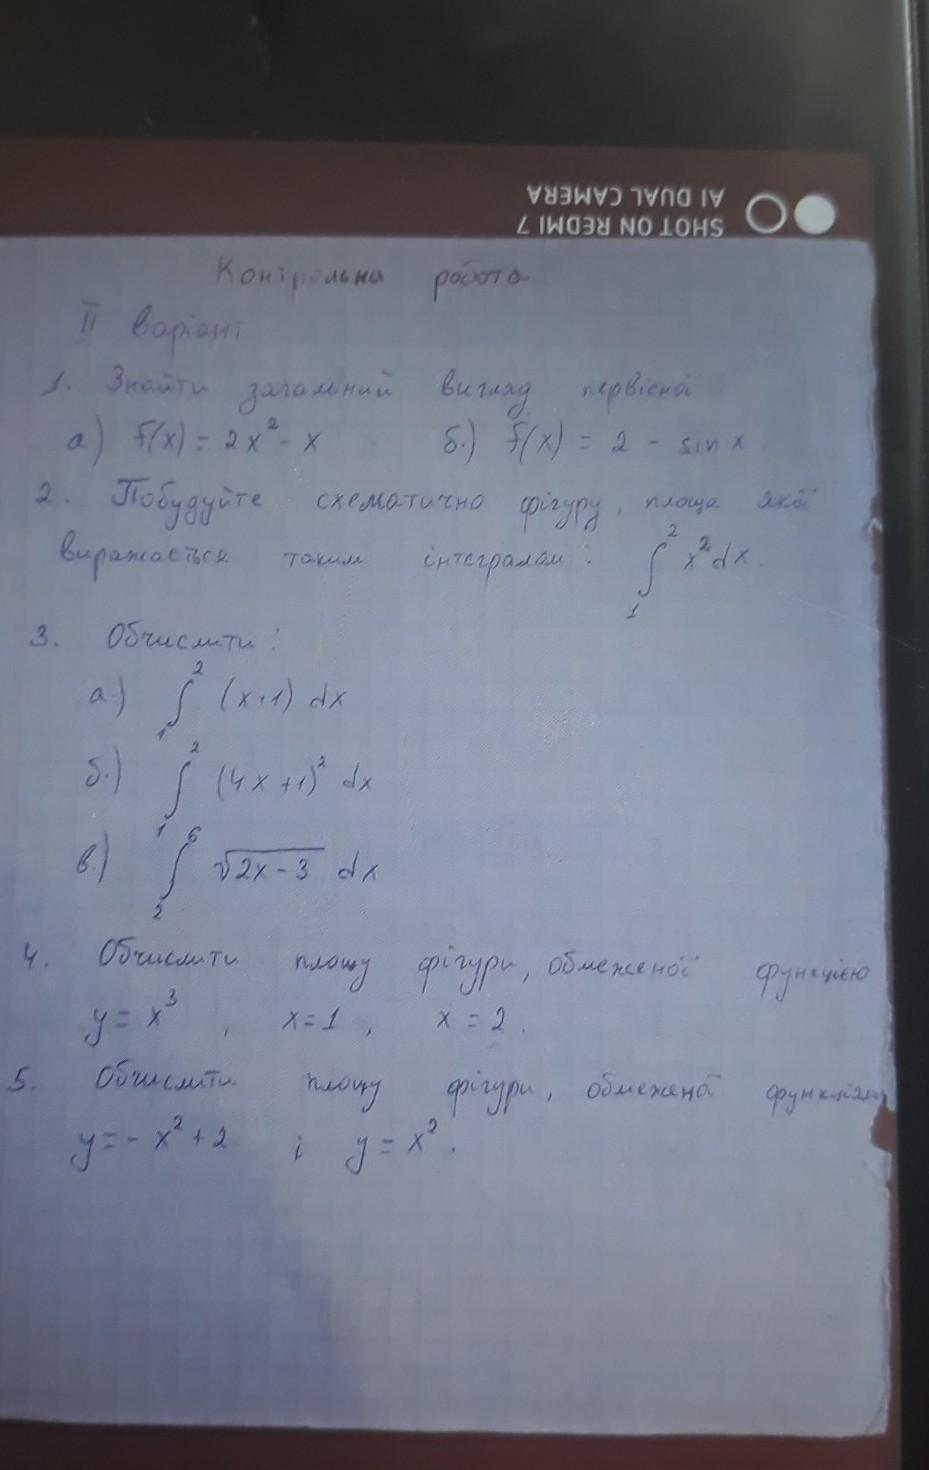 SHOT ON REDMI 7
AI DUAL CAMERA
Контрольна робота
II варіант
1. Знайти загальний вигляд первісної
а) f(x) = 2x² - x б.) f(x) = 2 - sin x.
2. Побудуйте схематично фігуру, площа якої
виражається таким інтегралом: ∫₁² x² dx.
3. Обчислити:
а) ∫₁² (x+1) dx
б.) ∫₁² (4x+1)² dx
в.) ∫₂⁶ √(2x-3) dx
4. Обчислити площу фігури, обмеженої функцією
y = x³, x=1, x = 2.
5. Обчислити площу фігури, обмеженої функціями
y = - x² + 2 і y = x².